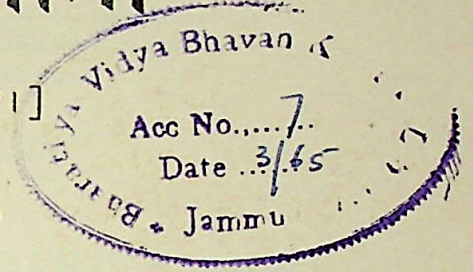 1]
Bharatiya Vidya Bhavan
Acc No.,....7..
Date ..3/65
Jammu